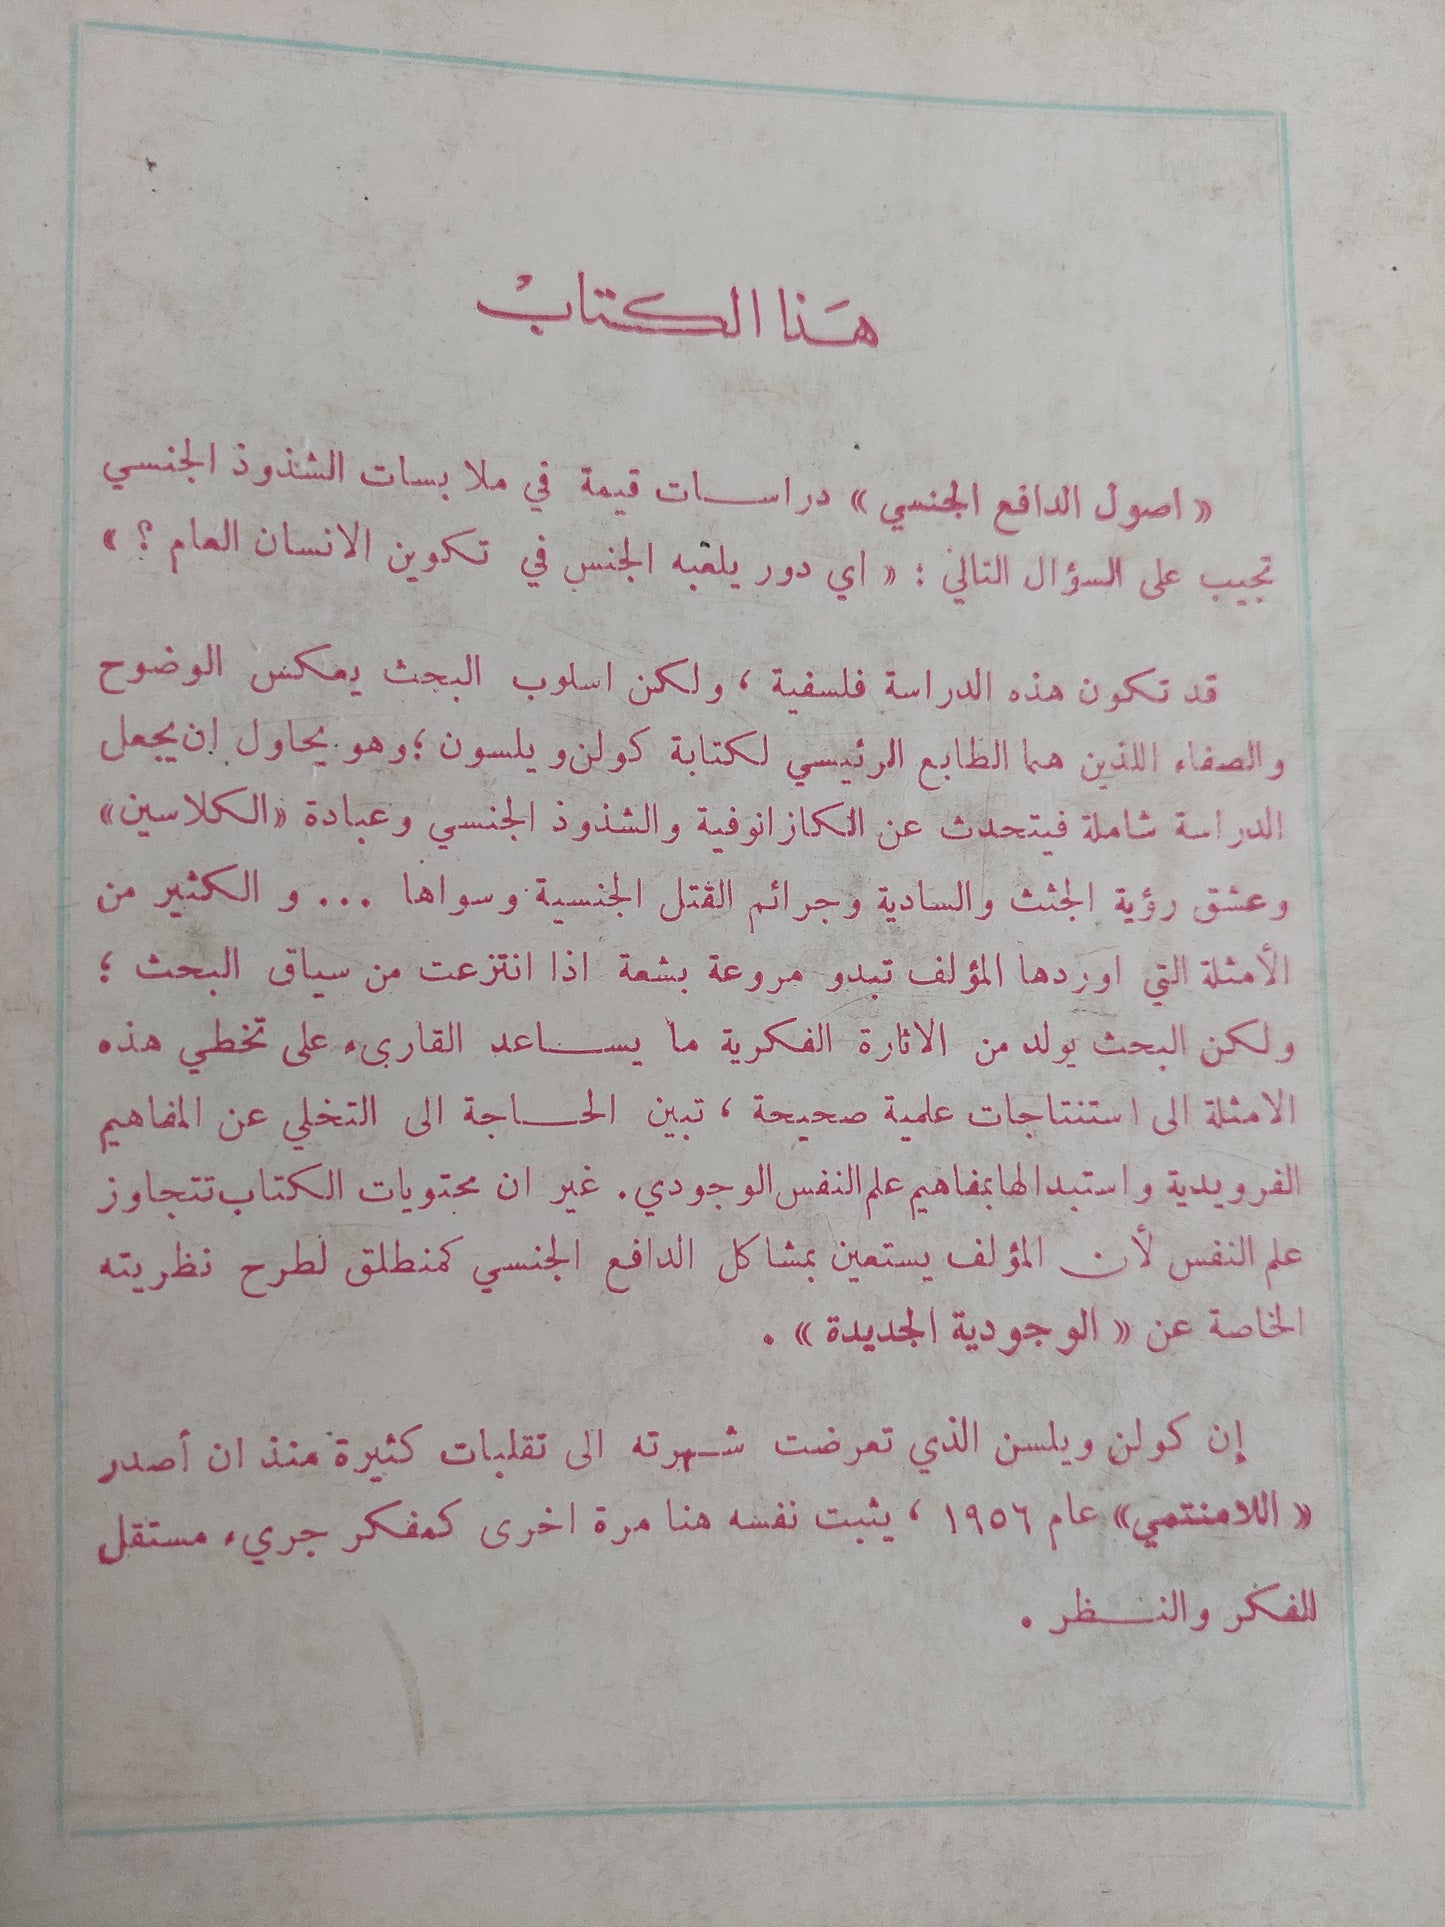 هَذا الكتابْ
« اصول الدافع الجنسي » دراســات قيمة في ملابسات الشذوذ الجنسي
تجيب على السؤال التالي : « اي دور يلعبه الجنس في تكوين الانسان العام ؟ »
قد تكون هذه الدراسة فلسفية ، ولكن اسلوب البحث يعكس الوضوح
والصفاء اللذين هما الطابع الرئيسي لكتابة كولن ويلسون ؛ وهو يحاول ان يجعل
الدراسة شاملة فيتحدث عن الكازانوفية والشذوذ الجنسي وعبادة «الكلاسين»
وعشق رؤية الجثث والسادية وجرائم القتل الجنسية وسواها ... و الكثير من
الأمثلة التي اوردها المؤلف تبدو مروعة بشعة اذا انتزعت من سياق البحث ؛
ولكن البحث يولد من الاثارة الفكرية ما يســاعد القارىء على تخطي هذه
الامثلة الى استنتاجات علمية صحيحة ، تبين الحــاجة الى التخلي عن المفاهيم
الفرويدية واستبدالها بمفاهيم علم النفس الوجودي . غير ان محتويات الكتاب تتجاوز
علم النفس لأن المؤلف يستعين بمشاكل الدافع الجنسي كمنطلق لطرح نظريته
الخاصة عن « الوجودية الجديدة » .
إن كولن ويلسن الذي تعرضت شــهرته الى تقلبات كثيرة منذ ان أصدر
« اللامنتمي » عام ١٩٥٦ ، يثبت نفسه هنا مرة اخرى كمفكر جريء مستقل
للفكر والنــظر .